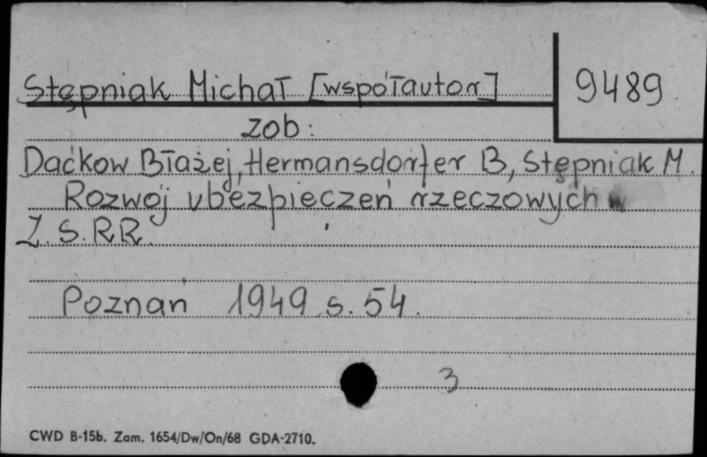 Stępniak Michał [współautor]
9489
zob:
Daćkow Błażej, Hermansdorfer B, Stępniak M.
Rozwój ubezpieczeń rzeczowych w
Z.S.RR.
Poznań 1949 s. 54.
3
CWD B-15b. Zam. 1654/Dw/On/68 GDA-2710.